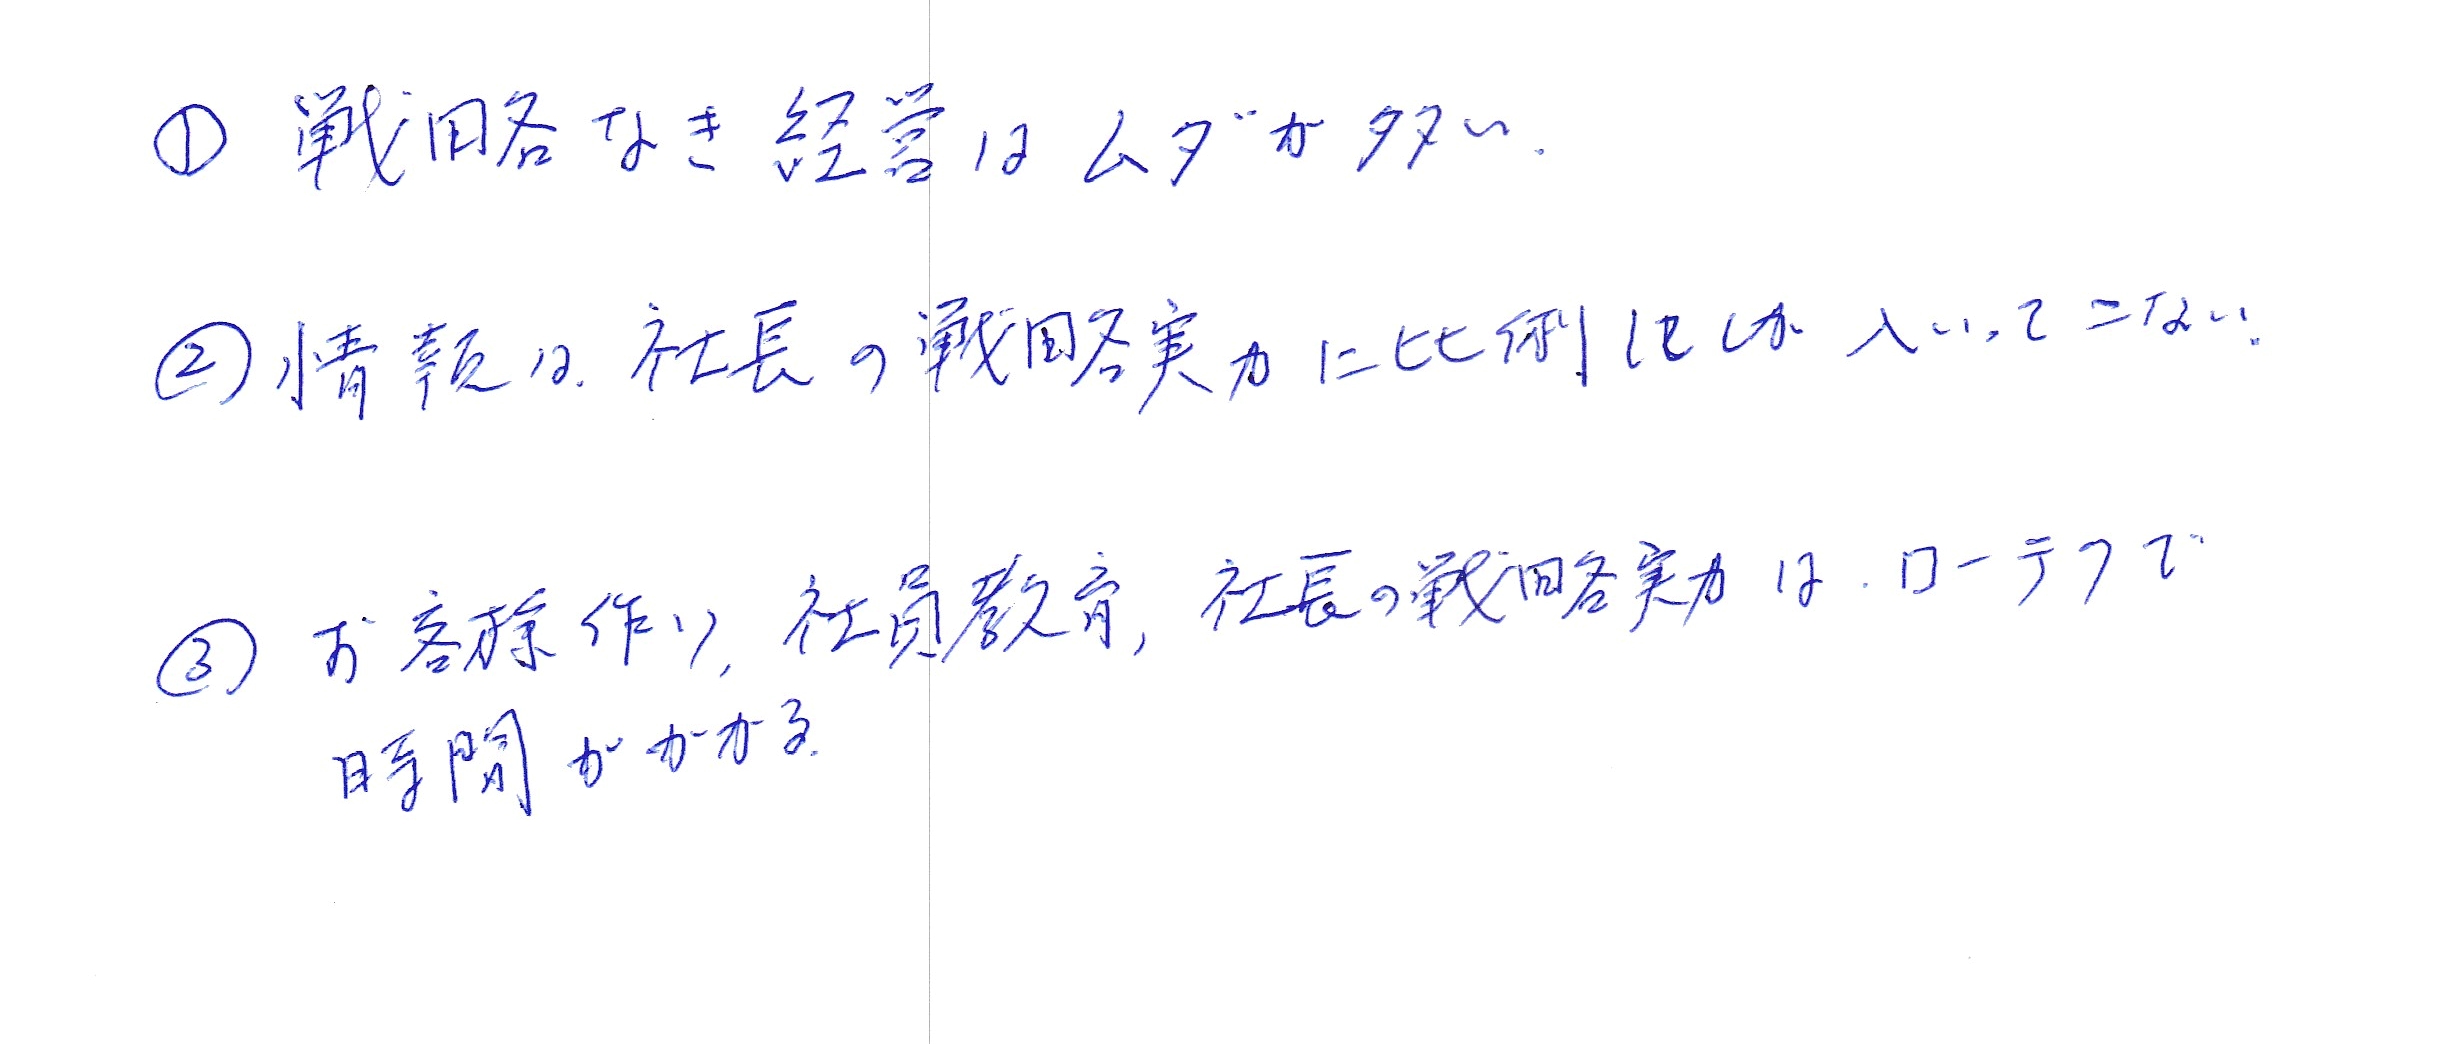 ① 戦略なき経営はムダが多い.
② 情報は. 社長の戦略実力に比例してしか 入いってこない.
③ お客様作り, 社員教育, 社長の戦略実力は. ローテクで
時間がかかる.